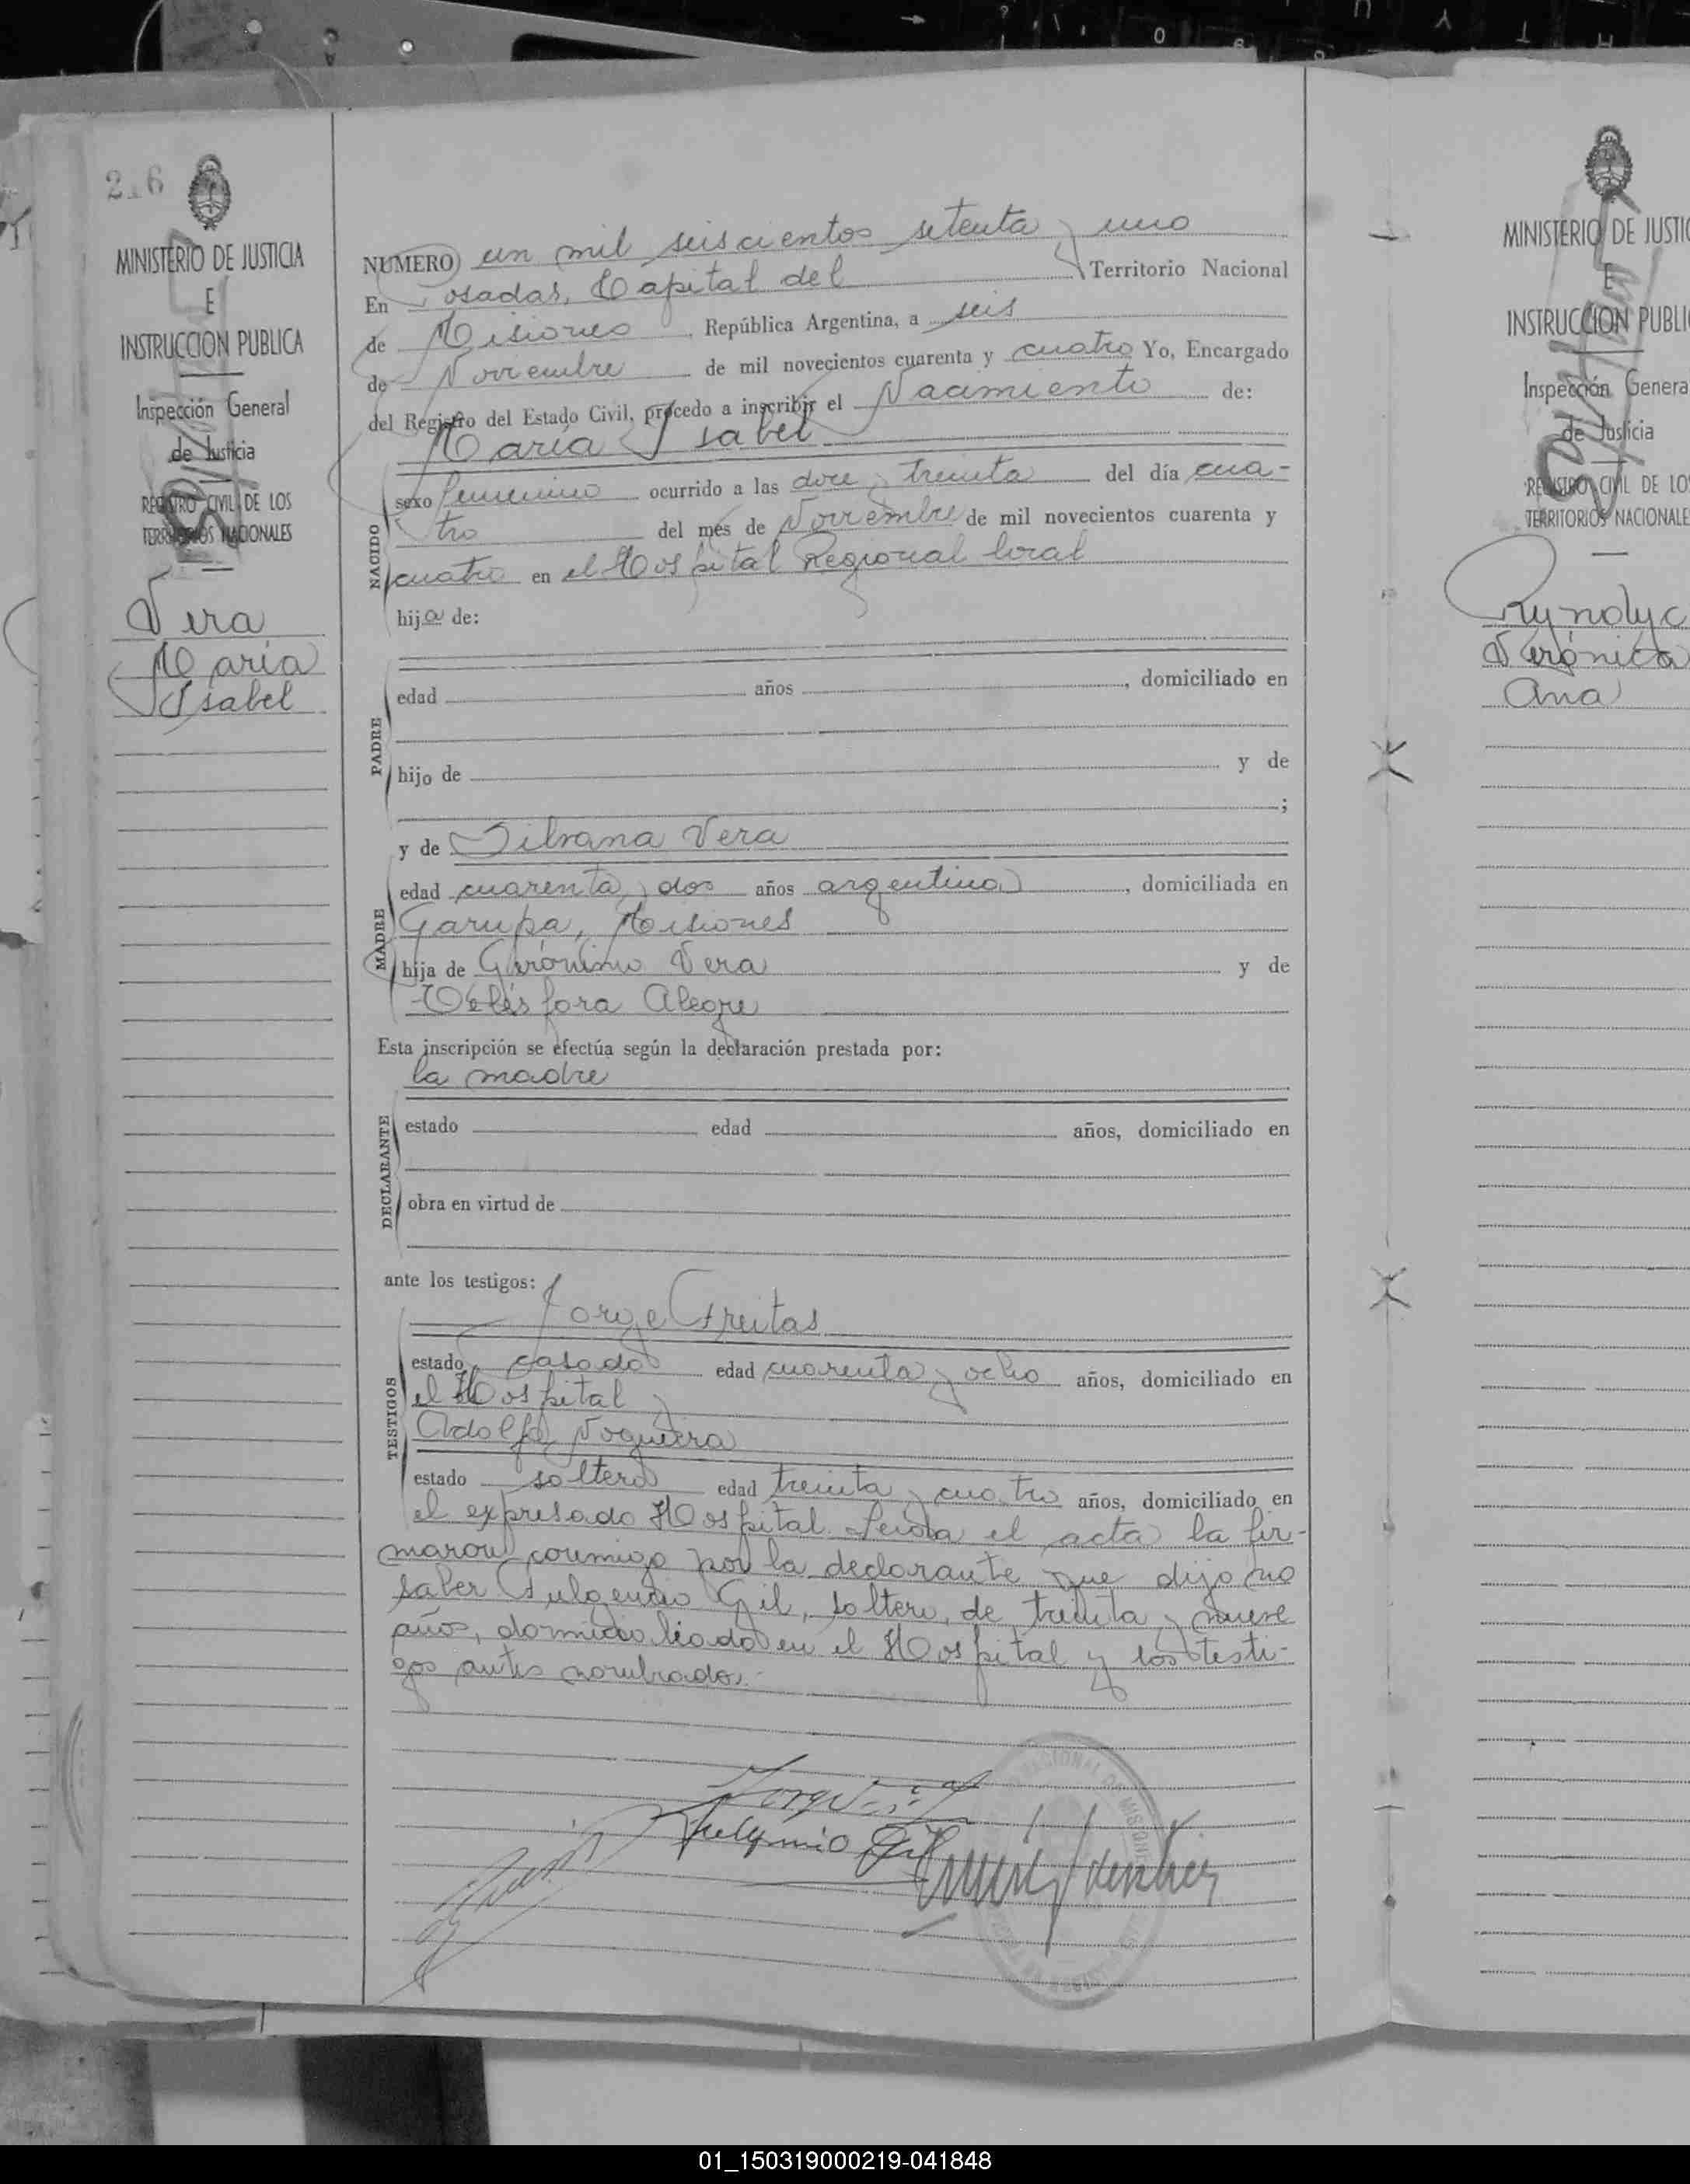 MINISTERIO DE JUSTICIA
E
INSTRUCCION PUBLICA
Inspección General
de Justicia
REGISTRO CIVIL DE LOS
TERRITORIOS NACIONALES
Vera
María
Isabel
NUMERO un mil seiscientos setenta y uno
En Posadas, Capital del Territorio Nacional
de Misiones República Argentina, a seis
de Noviembre de mil novecientos cuarenta y cuatro Yo, Encargado
del Registro del Estado Civil, procedo a inscribir el Nacimiento de:
María Isabel
NACIDO
sexo femenino ocurrido a las doce y treinta del día cua-
tro del mes de Noviembre de mil novecientos cuarenta y
cuatro en el Hospital Regional local
hija de:
PADRE
edad años , domiciliado en
hijo de y de
;
y de Silvana Vera
MADRE
edad cuarenta y dos años argentina , domiciliada en
Garupa, Misiones
hija de Gerónimo Vera y de
Telésfora Alegre
Esta inscripción se efectúa según la declaración prestada por:
la madre
DECLARANTE
estado edad años, domiciliado en
obra en virtud de
ante los testigos:
Jorge Freitas
TESTIGOS
estado casado edad cuarenta y ocho años, domiciliado en
el Hospital y
Adolfo Noguera
estado soltero edad treinta y cuatro años, domiciliado en
el expresado Hospital. Leida el acta la fir-
maron conmigo por la declarante que dijo no
saber Fulgencio Gil, soltero, de treinta y nueve
años, domiciliado en el Hospital y los testi-
gos antes nombrados.-
Fulgencio Gil
MINISTERIO DE JUSTIC
E
INSTRUCCION PUBLI
Inspección Genera
de Justicia
REGISTRO CIVIL DE LO
TERRITORIOS NACIONALE
Verónica
Ana
01_150319000219-041848